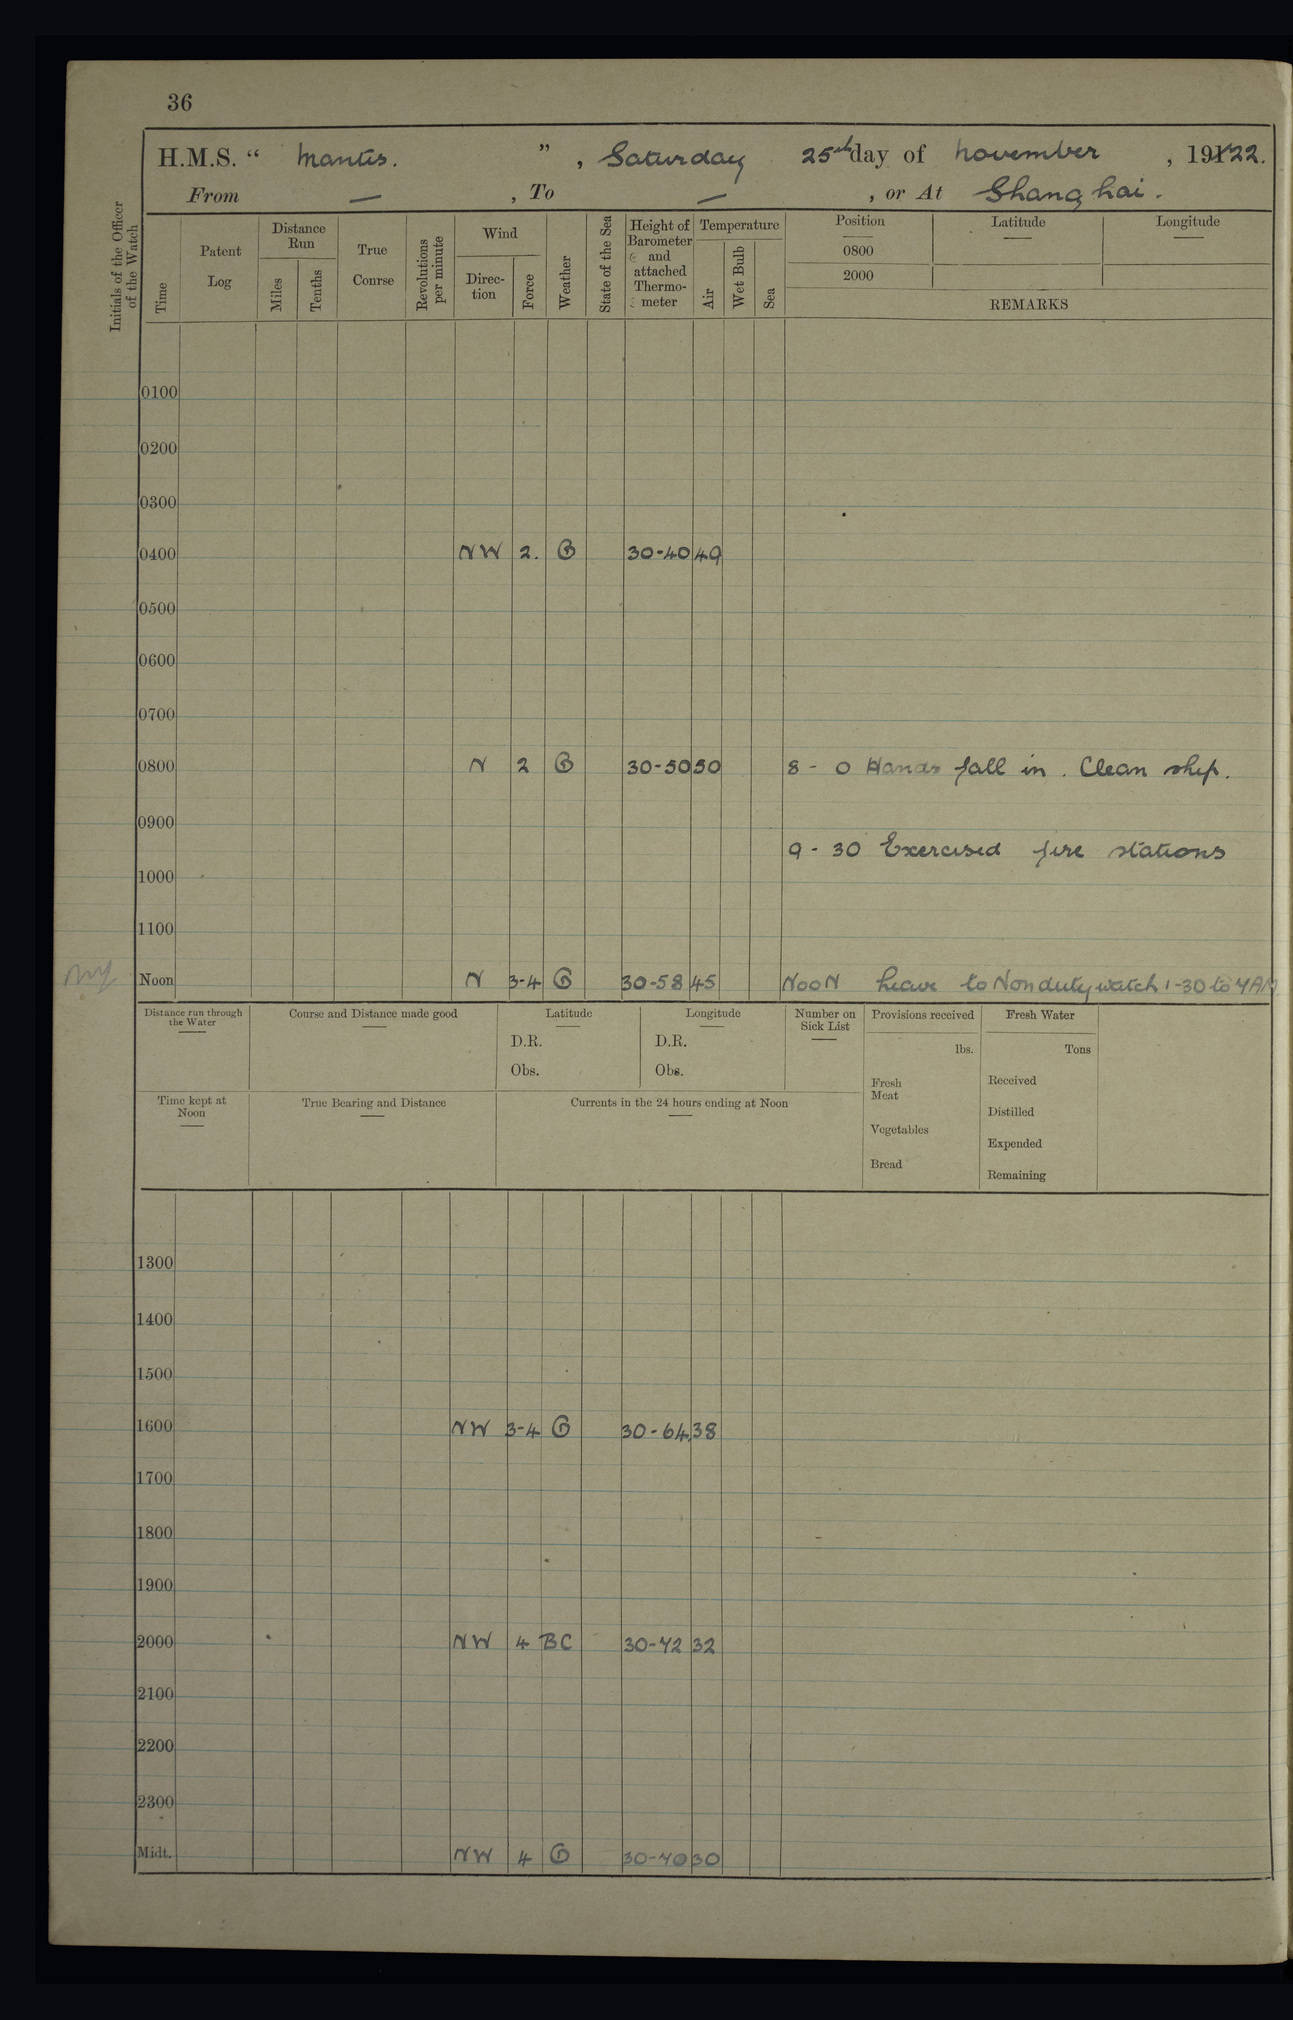 36
H.M.S. “ Mantis. ” , Saturday 25th day of November , 1922.
From — , To — , or At Shanghai.
Initials of the Officer of the Watch
Time
Patent Log
Distance Run
Miles
Tenths
True Course
Revolutions per minute
Wind
Direc- tion
Force
Weather
State of the Sea
Height of Barometer and attached Thermo- meter
Temperature
Air
Wet Bulb
Sea
Position Latitude Longitude
0800
2000
REMARKS
0100
0200
0300
0400 NW 2. G 30-40 49
0500
0600
0700
0800 N 2 G 30-50 50 8 - 0 Hands fall in. Clean ship.
0900
9 - 30 Exercised fire stations
1000
1100
Noon N 3-4 G 30-58 45 NooN Leave to Non duty watch 1-30 to 7AM
Distance run through the Water
Course and Distance made good
Latitude
D.R.
Obs.
Longitude
D.R.
Obs.
Number on Sick List
Provisions received
lbs.
Fresh Meat
Vegetables
Bread
Fresh Water
Tons
Received
Distilled
Expended
Remaining
Time kept at Noon
True Bearing and Distance
Currents in the 24 hours ending at Noon
1300
1400
1500
1600 NW 3-4 G 30-64 38
1700
1800
1900
2000 NW 4 BC 30-72 32
2100
2200
2300
Midt. NW 4 G 30-70 30